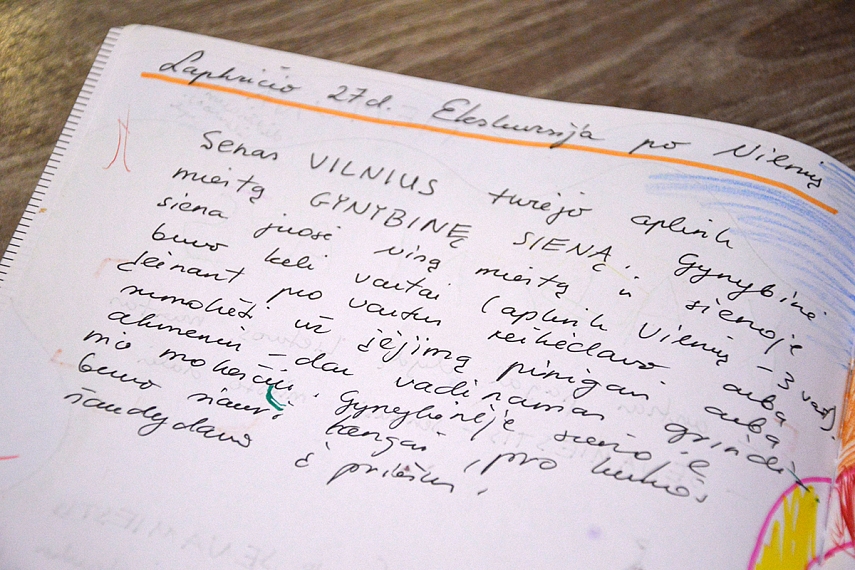 Lapkričio 27 d. Ekskursija po Vilnių
Senas VILNIUS turėjo aplink
miestą GYNYBINĘ SIENĄ. Gynybinė
siena juosė visą miestą ir sienoje
buvo keli vartai (aplink Vilnių – 3 vart).
Įeinant pro vartus reikėdavo arba
sumokėti už įėjimą pinigais arba
akmeniu – dar vadinamas grindi-
mo mokesčiu. Gynybinėje sienoje
buvo siauri langai, pro kuriuos
šaudydavo į priešus.